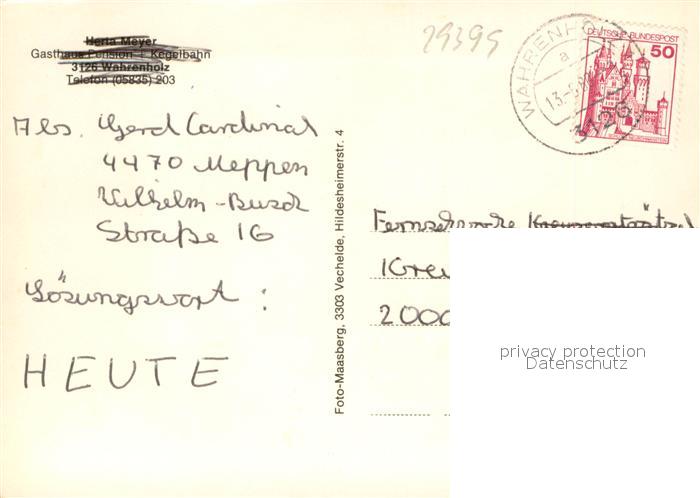 Herta Meyer
Gasthaus Pension + Kegelbahn
3126 Wahrenholz
Telefon (05835) 203
29395
WAHRENHO
a
13.-8.
3126
DEUTSCHE BUNDESPOST
50
Abs. Gerd Cardinal
4470 Meppen
Wilhelm-Busch
Straße 16
Lösungswort :
HEUTE
Foto-Maasberg, 3303 Vechelde, Hildesheimerstr. 4
Fernsehwoche Kreuzworträtsel
2000
privacy protection
Datenschutz